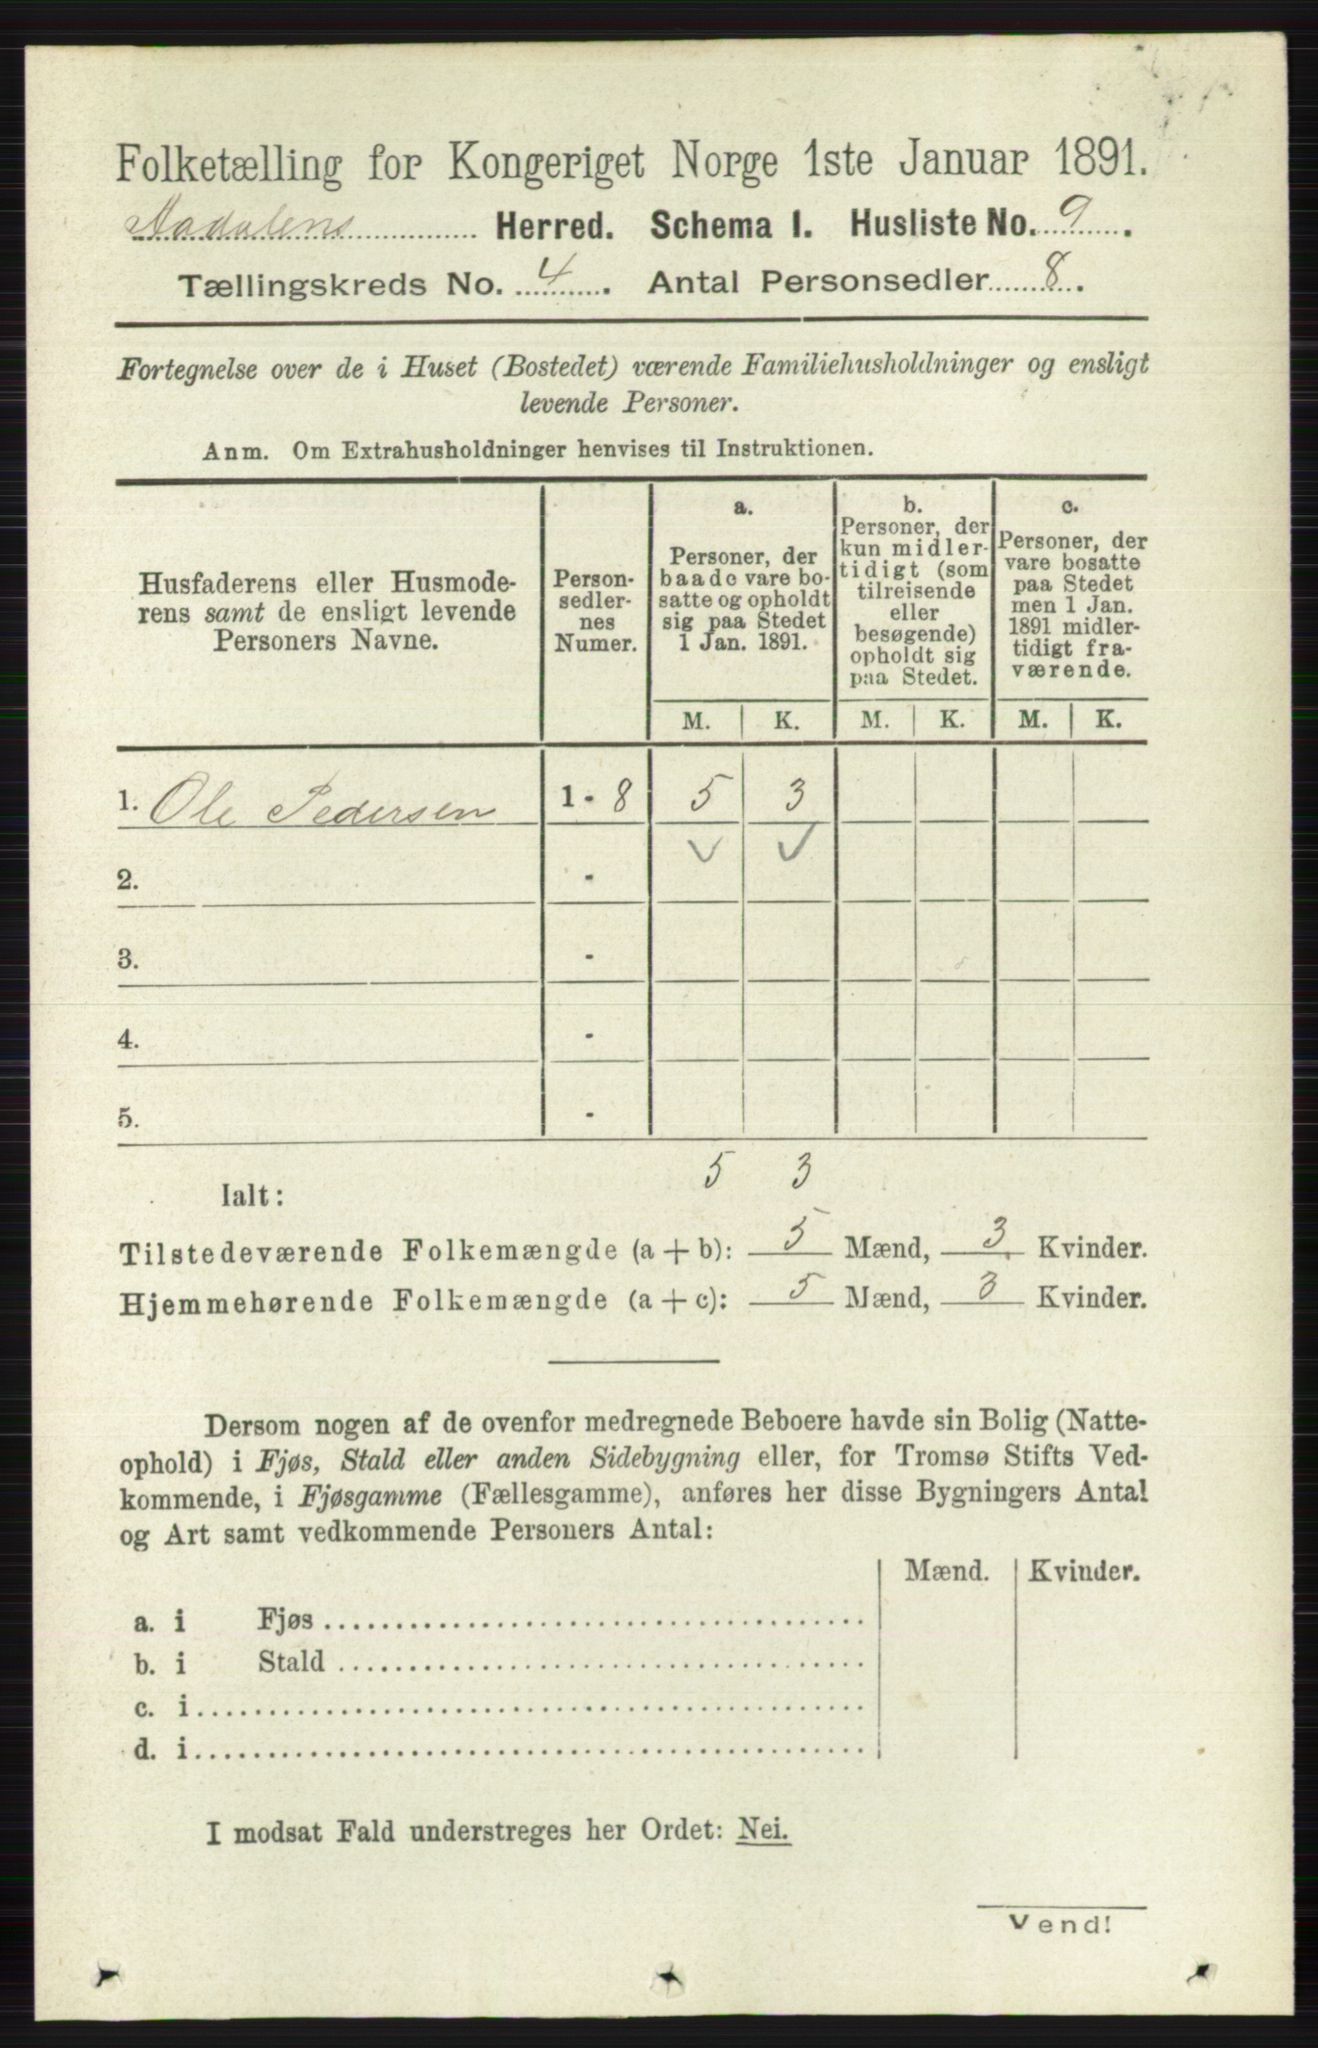 Folketælling for Kongeriget Norge 1ste Januar 1891.
Aadalens Herred. Schema I. Husliste No. 9.
Tællingskreds No. 4. Antal Personsedler 8.
Fortegnelse over de i Huset (Bostedet) værende Familiehusholdninger og ensligt
levende Personer.
Anm. Om Extrahusholdninger henvises til Instruktionen.
Husfaderens eller Husmode-
rens samt de ensligt levende
Personers Navne.
Person-
sedler-
nes
Numer.
a.
Personer, der
baade vare bo-
satte og opholdt
sig paa Stedet
1 Jan. 1891.
b.
Personer, der
kun midler-
tidigt (som
tilreisende
eller
besøgende)
opholdt sig
paa Stedet.
c.
Personer, der
vare bosatte
paa Stedet
men 1 Jan.
1891 midler-
tidigt fra-
værende.
M. K. M. K. M. K.
1. Ole Pedersen 1 - 8 5 3
2. -
3. -
4. -
5. -
Ialt: 5 3
Tilstedeværende Folkemængde (a + b): 5 Mænd, 3 Kvinder.
Hjemmehørende Folkemængde (a + c): 5 Mænd, 3 Kvinder.
Dersom nogen af de ovenfor medregnede Beboere havde sin Bolig (Natte-
ophold) i Fjøs, Stald eller anden Sidebygning eller, for Tromsø Stifts Ved-
kommende, i Fjøsgamme (Fællesgamme), anføres her disse Bygningers Antal
og Art samt vedkommende Personers Antal:
Mænd. Kvinder.
a. i Fjøs
b. i Stald
c. i
d. i
I modsat Fald understreges her Ordet: Nei.
Vend!